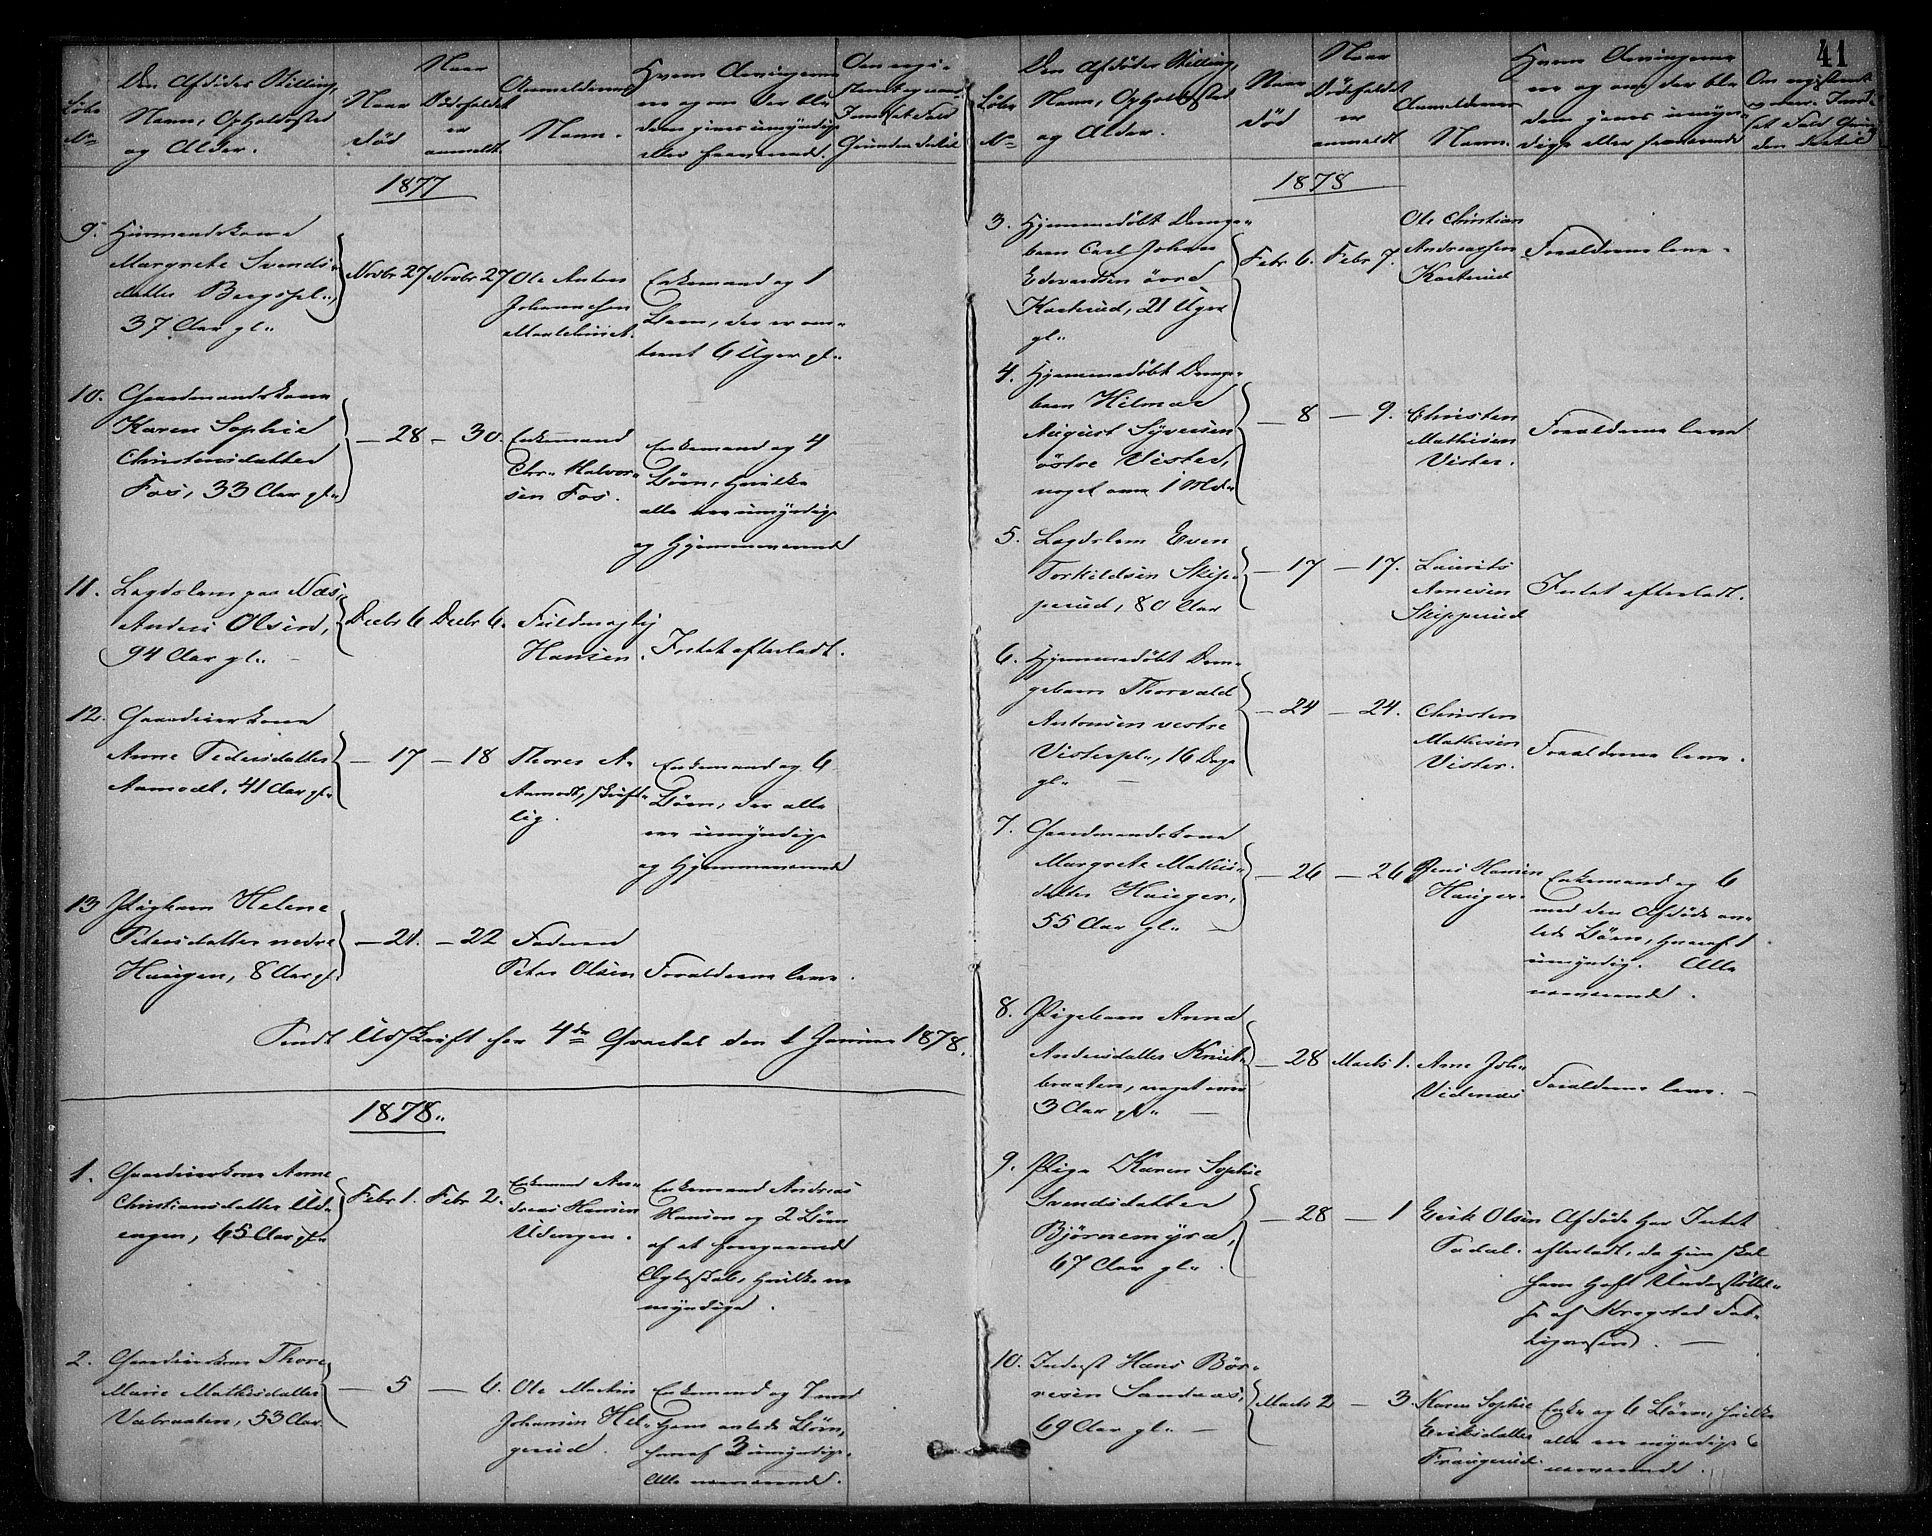 41
Löbe
No
Den Afdödes Stilling,
Navn, Opholdssted
og Alder.
Naar
död
Naar
Dödsfaldet
er
anmeldt.
Anmelderens
Navn.
Hvem Arvingerne
ere og om der bl.
dem gives umyndige
eller fraværende.
Grunden dertil
1877
9. Huusmandskone
Margrete Svends-
datter Bergspl.,
37 Aar gl.
Novbr 27
Novbr 27
Ole Anton
Johannesen
Enkemand og 1
Barn, der er om-
trent 6 Uger gl.
10. Gaardmandskone
Karen Sophie
Christensdatter
Fos, 33 Aar gl.
— 28
— 30.
Enkemand
Chr. Halvor-
sen Fos.
Enkemand og 4
Börn, hvilke
alle ere umyndige
og hjemmeværende
11. Lægdslem paa Næs
Anders Olsen,
94 Aar gl. —
Decbr 6
Decbr 6.
Fuldmægtig
Hansen.
Intet efterladt.
12. Gaardeierkone
Anne Pedersdatter
Aamodt, 41 Aar gl.
— 17
— 18
Thores A.
Aamodt, skrift-
lig.
Enkemand og 6
Börn, der alle
ere umyndige
og hjemmeværende
13 Pigebarn Helene
Petersdatter nedre
Haugen, 8 Aar gl.
— 21.
— 22
Faderen
Peter Olsen
Forældrene leve.
Sendt Udskrift for 4de Qvartal den 1 Januar 1878.
1878.
1. Gaardeierkone Anne
Christiansdatter Ud-
engen, 65 Aar gl.
Febr 1.
Febr 2.
Enkemand An-
dreas Hansen
Udengen.
Enkemand Andreas
Hansen og 2 Börn
af et foregaaende
Ægteskab, hvilke ere
myndige.
2. Gaardeierkone Thore
Marie Mathisdatter
53 Aar
— 5
— 6.
Ole Martin
Johansen Hel-
gerud.
Enkemand og
ham avlede Börn,
hvoraf 3 umyndige.
Alle nærværende.
Löbe
No
Den Afdödes Stilling,
Navn, Opholdssted
og Alder.
Naar
död
Naar
Dödsfaldet
er
anmeldt
Anmelderens
Navn.
Hvem Arvingerne
ere og om der bl.
dem gives umyn-
dige eller fraværende
1878
3. Hjemmedöbt Drenge-
barn Carl Johan
Edvardsen övre
Kasterud, 21 Uger
gl.
Febr 6.
Febr 7.
Ole Christian
Andreassen
Kasterud
Forældrene leve.
4. Hjemmedöbt Drenge-
barn Hilmar
August Syversen
östre Vister,
noget over 1 Md.
— 8
— 9.
Christen
Mathisen
Vister.
Forældrene leve
5. Lægdslem Even
Torkildsen Skip-
perud, 80 Aar
— 17
— 17.
Laurits
Arnesen
Skipperud
Intet efterladt.
6. Hjemmedöbt Dren-
gebarn Thorvald
Antonsen vestre
Visterpl., 16 Dage
gl. —
— 24
— 24.
Christen
Mathisen
Vister.
Forældrene leve.
7. Gaardmandskone
Margrete Mathis-
datter Hauger,
55 Aar gl. —
— 26
— 26
Jens Hansen
Hauger
Enkemand og 6
med den Afdöde av-
lede Börn, hvoraf 1
umyndig. Alle
nærværende.
8. Pigebarn Anna
Andersdatter Knut-
braaten, noget over
3 Aar gl. —
— 28
Marts 1.
Arne Joh.
Videnæs
Forældrene leve. —
9. Pige Karen Sophie
Svendsdatter
Björnemyra,
67 Aar gl.
— 28
— 1
Erik Olsen
Afdöde har Intet
efterladt, da hun skal
have havt Understöttel-
se af Kragstad Fat-
tigvæsen. —
10. Inderst Hans Bör-
resen Sandaas,
69 Aar gl. —
Marts 2
— 3.
Karen Sophie
Eriksdatter
Fraugerud
Enke og 6 Börn, hvilke
alle ere myndige &
nærværende.